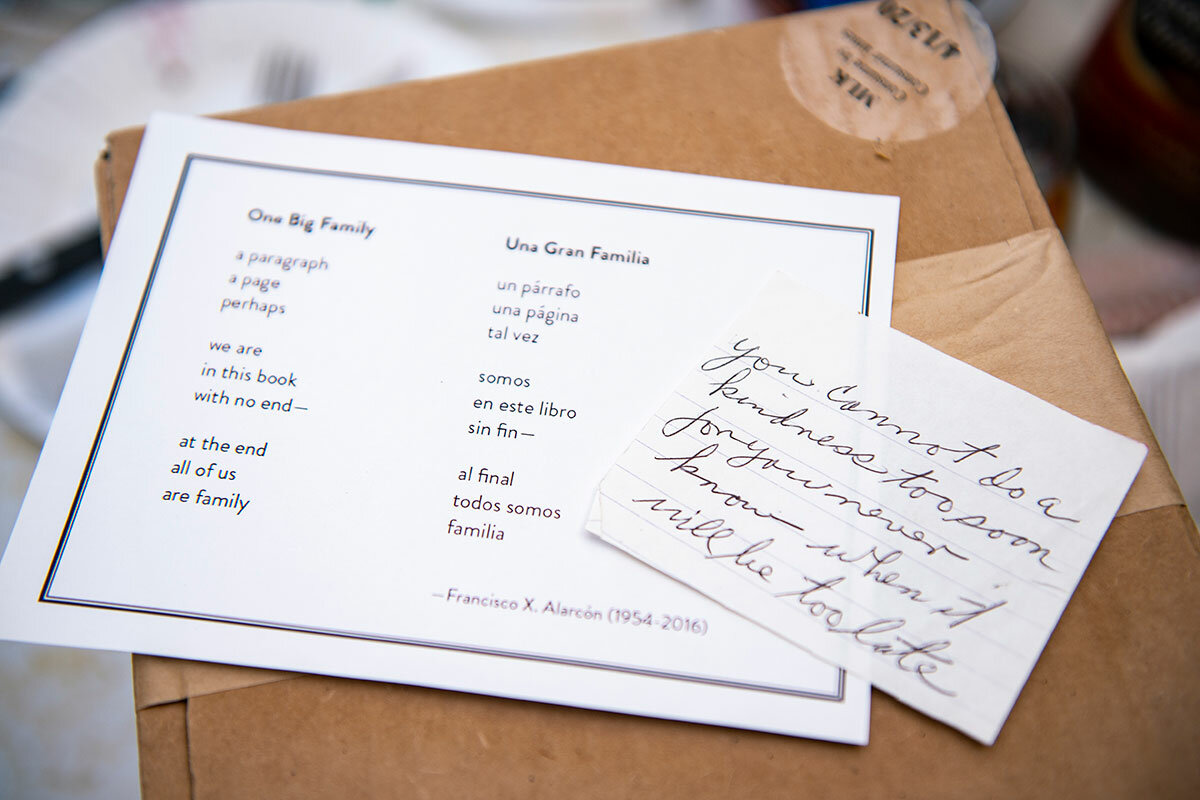 One Big Family
a paragraph
a page
perhaps
we are
in this book
with no end—
at the end
all of us
are family
Una Gran Familia
un párrafo
una página
tal vez
somos
en este libro
sin fin—
al final
todos somos
familia
—Francisco X. Alarcón (1954-2016)
you cannot do a
kindness too soon
for you never
know when it
will be too late
MLK
4/13/20